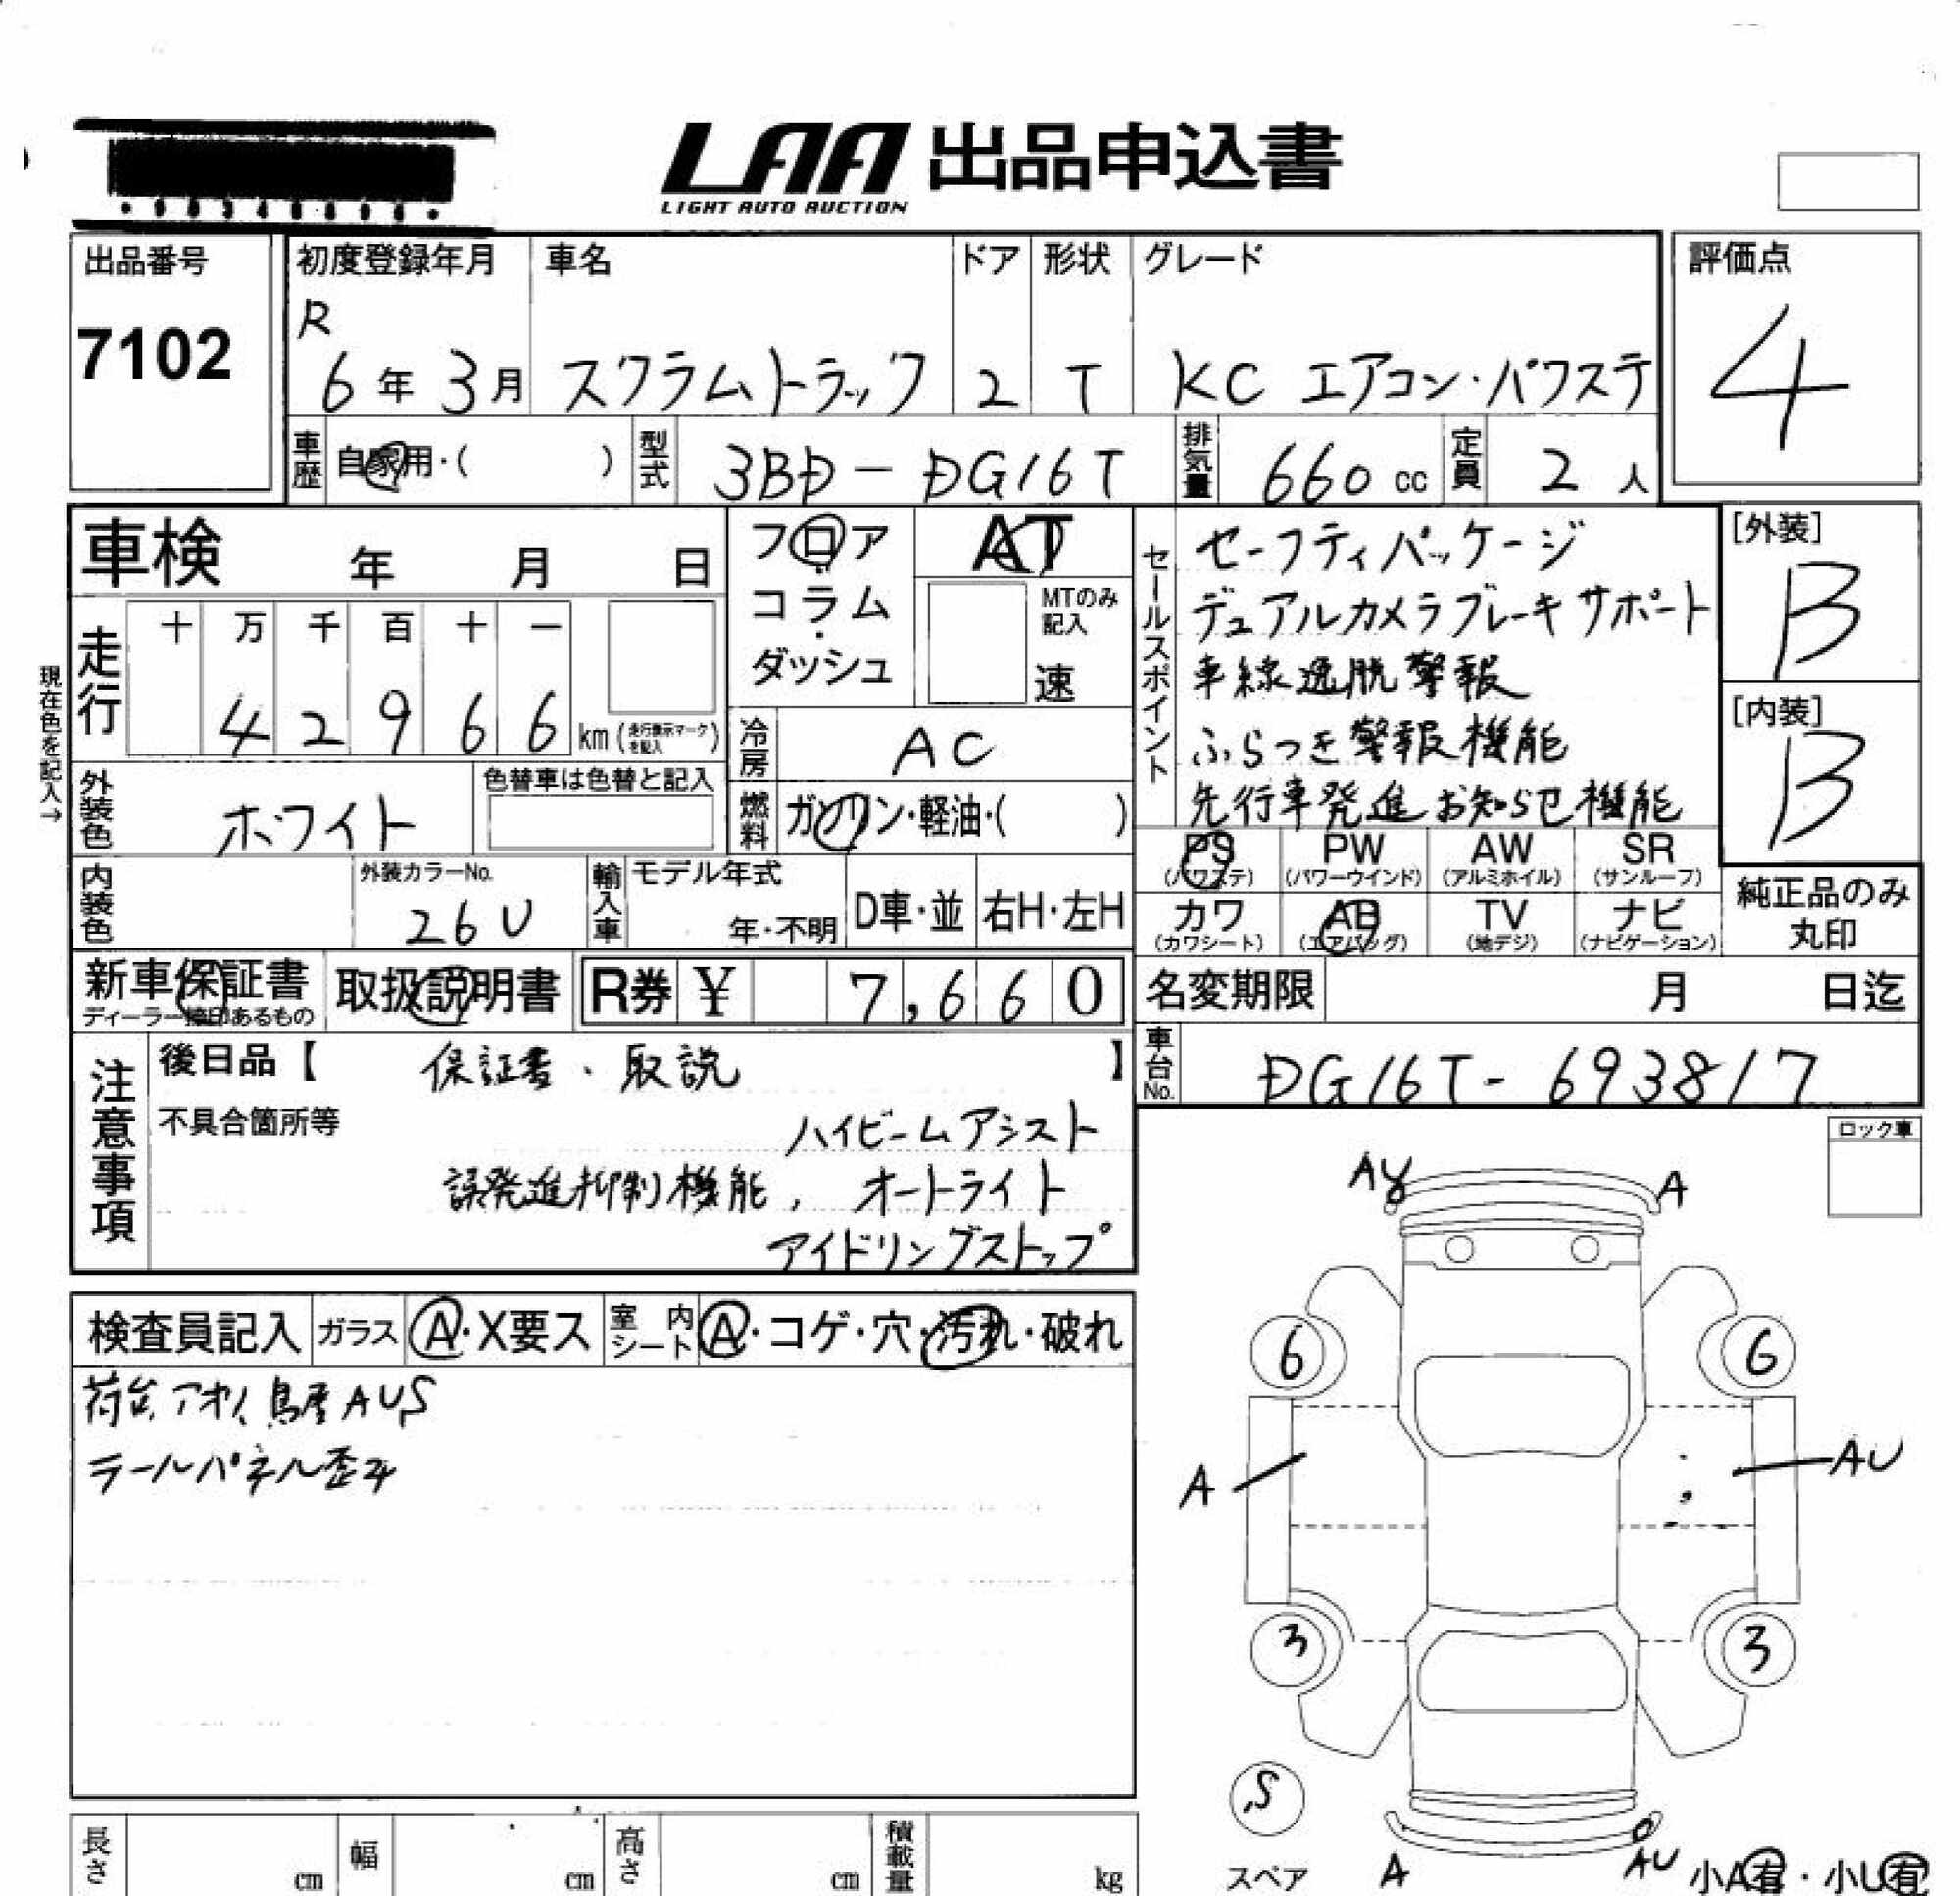 LAA 出品申込書
LIGHT AUTO AUCTION
出品番号
7102
初度登録年月
R
6年 3月
車名
スクラムトラック
ドア
2
形状
T
グレード
KC エアコン・パワステ
評価点
4
車歴 自家用・( )
型式 3BD-DG16T
排気量 660 cc
定員 2 人
車検 年 月 日
フロア
コラム
・
ダッシュ
AT
MTのみ記入
速
走行 十 万 千 百 十 一
4 2 9 6 6 km (走行表示マークを記入)
現在色を記入→
冷房 AC
外装色 ホワイト
色替車は色替と記入
燃料 ガソリン・軽油・( )
内装色
外装カラーNo.
26U
輸入車 モデル年式
年・不明
D車・並
右H・左H
セールスポイント
セーフティパッケージ
デュアルカメラブレーキサポート
車線逸脱警報
ふらつき警報機能
先行車発進お知らせ機能
[外装]
B
[内装]
B
PS (パワステ)
PW (パワーウインド)
AW (アルミホイル)
SR (サンルーフ)
カワ (カワシート)
AB (エアバッグ)
TV (地デジ)
ナビ (ナビゲーション)
純正品のみ
丸印
新車保証書
ディーラー捺印あるもの
取扱説明書
R券 ¥ 7,660
名変期限 月 日迄
車台No. DG16T-693817
注意事項
後日品【 保証書、取説 】
不具合箇所等
ハイビームアシスト
誤発進抑制機能、オートライト
アイドリングストップ
ロック車
検査員記入 ガラス A・X要ス 室内シート A・コゲ・穴・汚れ・破れ
荷台アオリ、鳥居AUS
テールパネル歪み
AU
A
6
6
A
AU
3
3
S
スペア
A
AU
小A有・小U有
長さ cm
幅 cm
高さ cm
積載量 kg